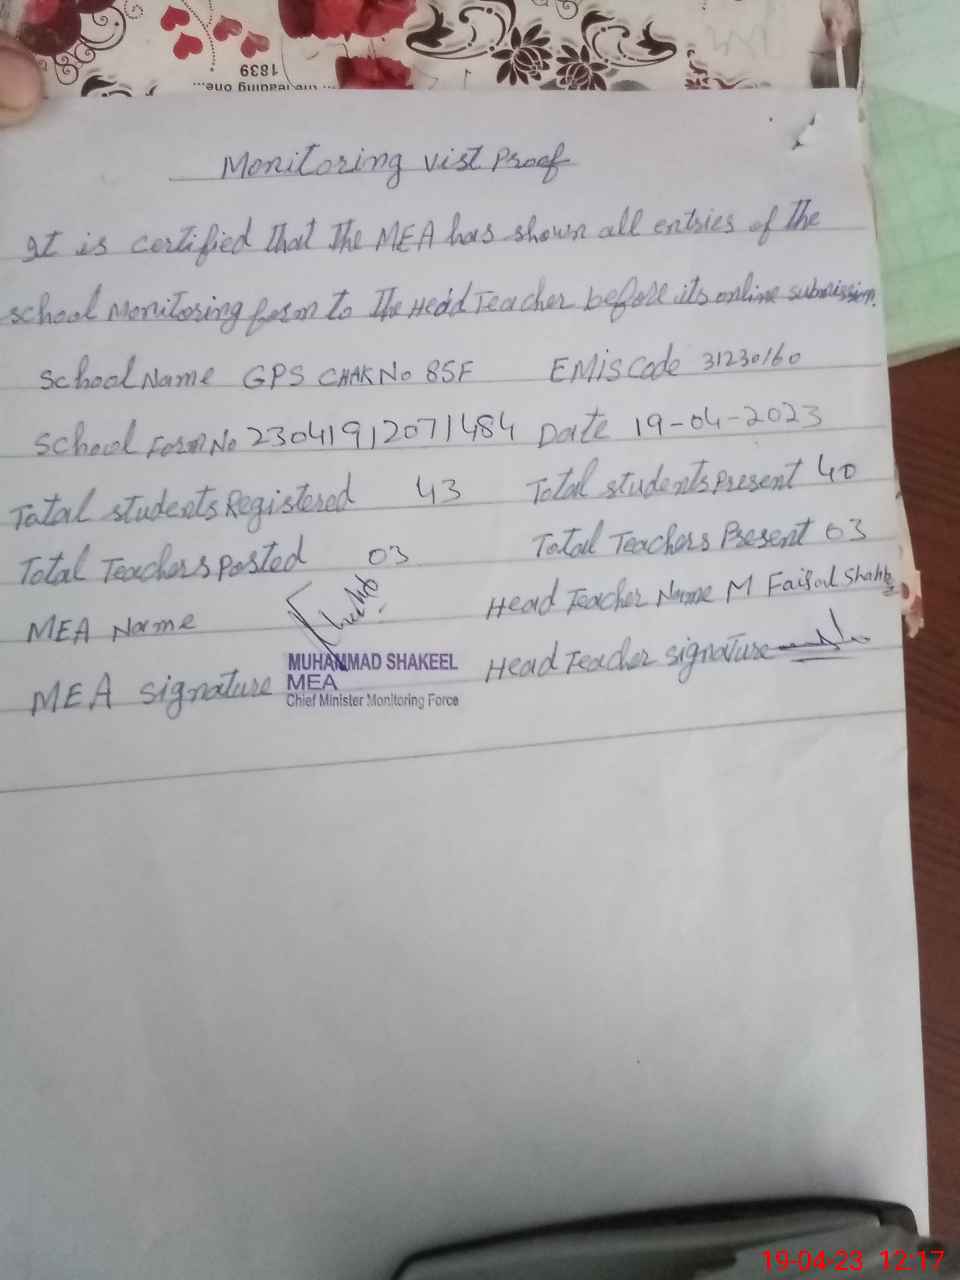 1839
the reading one...
Monitoring Vist Proof
It is certified that the MEA has shown all entries of the
school Monitoring form to the Head Teacher before its online submission.
School Name GPS CHAK No 85F EMIS Code 31230160
School Form No 23041912071484 Date 19-04-2023
Total students Registered 43 Total students Present 40
Total Teachers Posted 03 Total Teachers Present 03
MEA Name Head Teacher Name M Faisal
MUHAMMAD SHAKEEL
MEA Signature MEA Head Teacher Signature
Chief Minister Monitoring Force
19-04-23 12:17